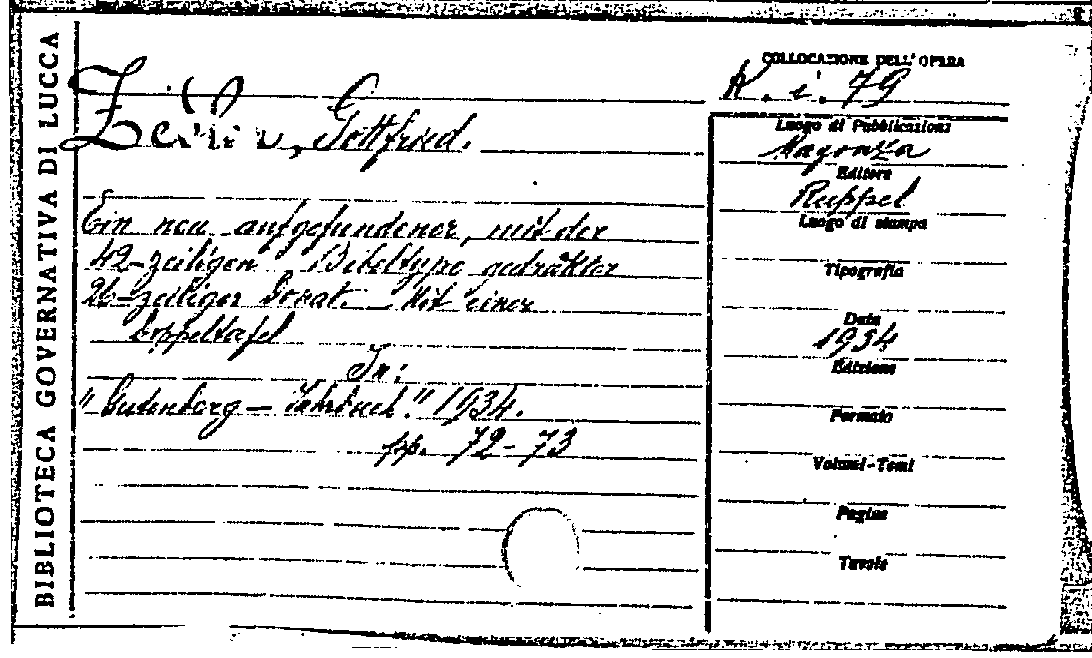 BIBLIOTECA GOVERNATIVA DI LUCCA
Gottfried.
Ein neu aufgefundener, mit der
42-zeiligen Bibeltype gedrukter
26-zeiliger Donat. Mit einer
Doppeltafel
In:
"Gutenberg - Jahrbuch." 1934.
pp. 72-73
COLLOCAZIONE DELL'OPERA
K. i. 79
Luogo di Pubblicazioni
Magonza
Editore
Ruppel
Luogo di stampa
Tipografia
Data
1934
Edizione
Formato
Volumi-Tomi
Pagine
Tavole